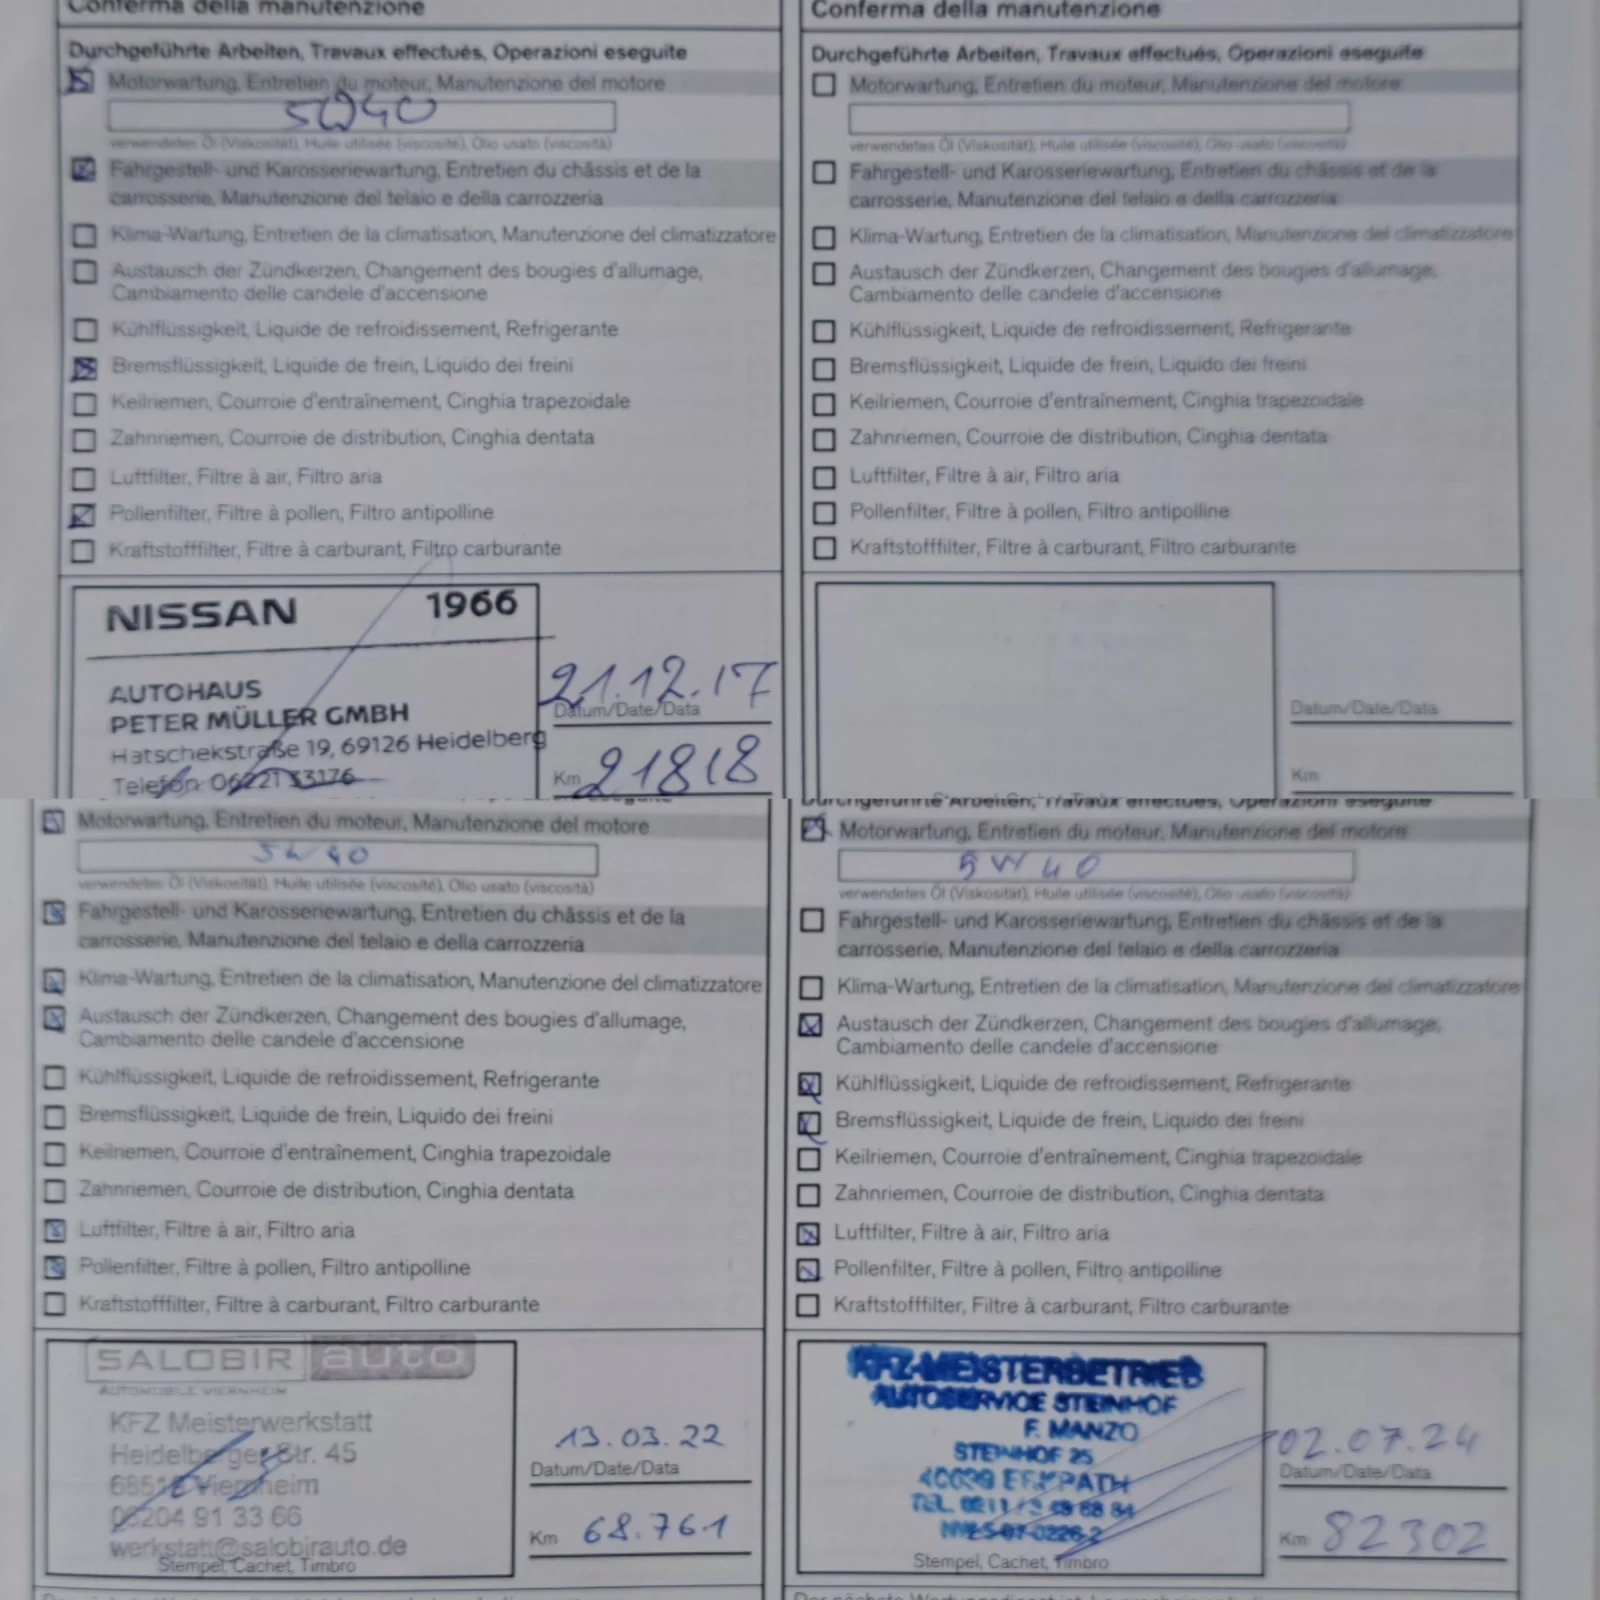 Conferma della manutenzione
Durchgeführte Arbeiten, Travaux effectués, Operazioni eseguite
Motorwartung, Entretien du moteur, Manutenzione del motore
5W40
verwendetes Öl (Viskosität), Huile utilisée (viscosité), Olio usato (viscosità)
Fahrgestell- und Karosseriewartung, Entretien du châssis et de la
carrosserie, Manutenzione del telaio e della carrozzeria
Klima-Wartung, Entretien de la climatisation, Manutenzione del climatizzatore
Austausch der Zündkerzen, Changement des bougies d'allumage,
Cambiamento delle candele d'accensione
Kühlflüssigkeit, Liquide de refroidissement, Refrigerante
Bremsflüssigkeit, Liquide de frein, Liquido dei freini
Keilriemen, Courroie d'entraînement, Cinghia trapezoidale
Zahnriemen, Courroie de distribution, Cinghia dentata
Luftfilter, Filtre à air, Filtro aria
Pollenfilter, Filtre à pollen, Filtro antipolline
Kraftstofffilter, Filtre à carburant, Filtro carburante
NISSAN 1966
AUTOHAUS
PETER MÜLLER GMBH
Hatschekstraße 19, 69126 Heidelberg
Telefon 06221 33176
21.12.17
Datum/Date/Data
Km 21818
Conferma della manutenzione
Durchgeführte Arbeiten, Travaux effectués, Operazioni eseguite
Motorwartung, Entretien du moteur, Manutenzione del motore
verwendetes Öl (Viskosität), Huile utilisée (viscosité), Olio usato (viscosità)
Fahrgestell- und Karosseriewartung, Entretien du châssis et de la
carrosserie, Manutenzione del telaio e della carrozzeria
Klima-Wartung, Entretien de la climatisation, Manutenzione del climatizzatore
Austausch der Zündkerzen, Changement des bougies d'allumage,
Cambiamento delle candele d'accensione
Kühlflüssigkeit, Liquide de refroidissement, Refrigerante
Bremsflüssigkeit, Liquide de frein, Liquido dei freini
Keilriemen, Courroie d'entraînement, Cinghia trapezoidale
Zahnriemen, Courroie de distribution, Cinghia dentata
Luftfilter, Filtre à air, Filtro aria
Pollenfilter, Filtre à pollen, Filtro antipolline
Kraftstofffilter, Filtre à carburant, Filtro carburante
Datum/Date/Data
Km
eseguite
Motorwartung, Entretien du moteur, Manutenzione del motore
5W40
verwendetes Öl (Viskosität), Huile utilisée (viscosité), Olio usato (viscosità)
Fahrgestell- und Karosseriewartung, Entretien du châssis et de la
carrosserie, Manutenzione del telaio e della carrozzeria
Klima-Wartung, Entretien de la climatisation, Manutenzione del climatizzatore
Austausch der Zündkerzen, Changement des bougies d'allumage,
Cambiamento delle candele d'accensione
Kühlflüssigkeit, Liquide de refroidissement, Refrigerante
Bremsflüssigkeit, Liquide de frein, Liquido dei freini
Keilriemen, Courroie d'entraînement, Cinghia trapezoidale
Zahnriemen, Courroie de distribution, Cinghia dentata
Luftfilter, Filtre à air, Filtro aria
Pollenfilter, Filtre à pollen, Filtro antipolline
Kraftstofffilter, Filtre à carburant, Filtro carburante
SALOBIR auto
AUTOMOBILE VIERNHEIM
KFZ Meisterwerkstatt
Heidelberger Str. 45
Viernheim
06204 91 33 66
werkstatt@salobirauto.de
Stempel, Cachet, Timbro
13.03.22
Datum/Date/Data
Km 68.761
Durchgeführte Arbeiten, Travaux effectués, Operazioni eseguite
Motorwartung, Entretien du moteur, Manutenzione del motore
5W40
verwendetes Öl (Viskosität), Huile utilisée (viscosité), Olio usato (viscosità)
Fahrgestell- und Karosseriewartung, Entretien du châssis et de la
carrosserie, Manutenzione del telaio e della carrozzeria
Klima-Wartung, Entretien de la climatisation, Manutenzione del climatizzatore
Austausch der Zündkerzen, Changement des bougies d'allumage,
Cambiamento delle candele d'accensione
Kühlflüssigkeit, Liquide de refroidissement, Refrigerante
Bremsflüssigkeit, Liquide de frein, Liquido dei freini
Keilriemen, Courroie d'entraînement, Cinghia trapezoidale
Zahnriemen, Courroie de distribution, Cinghia dentata
Luftfilter, Filtre à air, Filtro aria
Pollenfilter, Filtre à pollen, Filtro antipolline
Kraftstofffilter, Filtre à carburant, Filtro carburante
KFZ-MEISTERBETRIEB
AUTOSERVICE STEINHOF
F. MANZO
STEINHOF 25
TEL.
Stempel, Cachet, Timbro
02.07.24
Datum/Date/Data
Km 82302